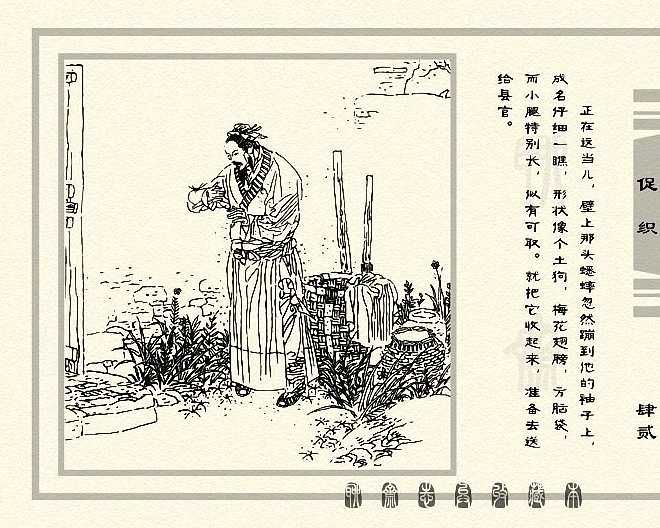 正在这当儿，壁上那头蟋蟀忽然蹦到他的袖子上，
成名仔细一瞧，形状像个土狗，梅花翅膀，方脑袋，
而小腿特别长，似有可取。就把它收起来，准备去送
给县官。
促织
肆贰
聊斋志异收藏本